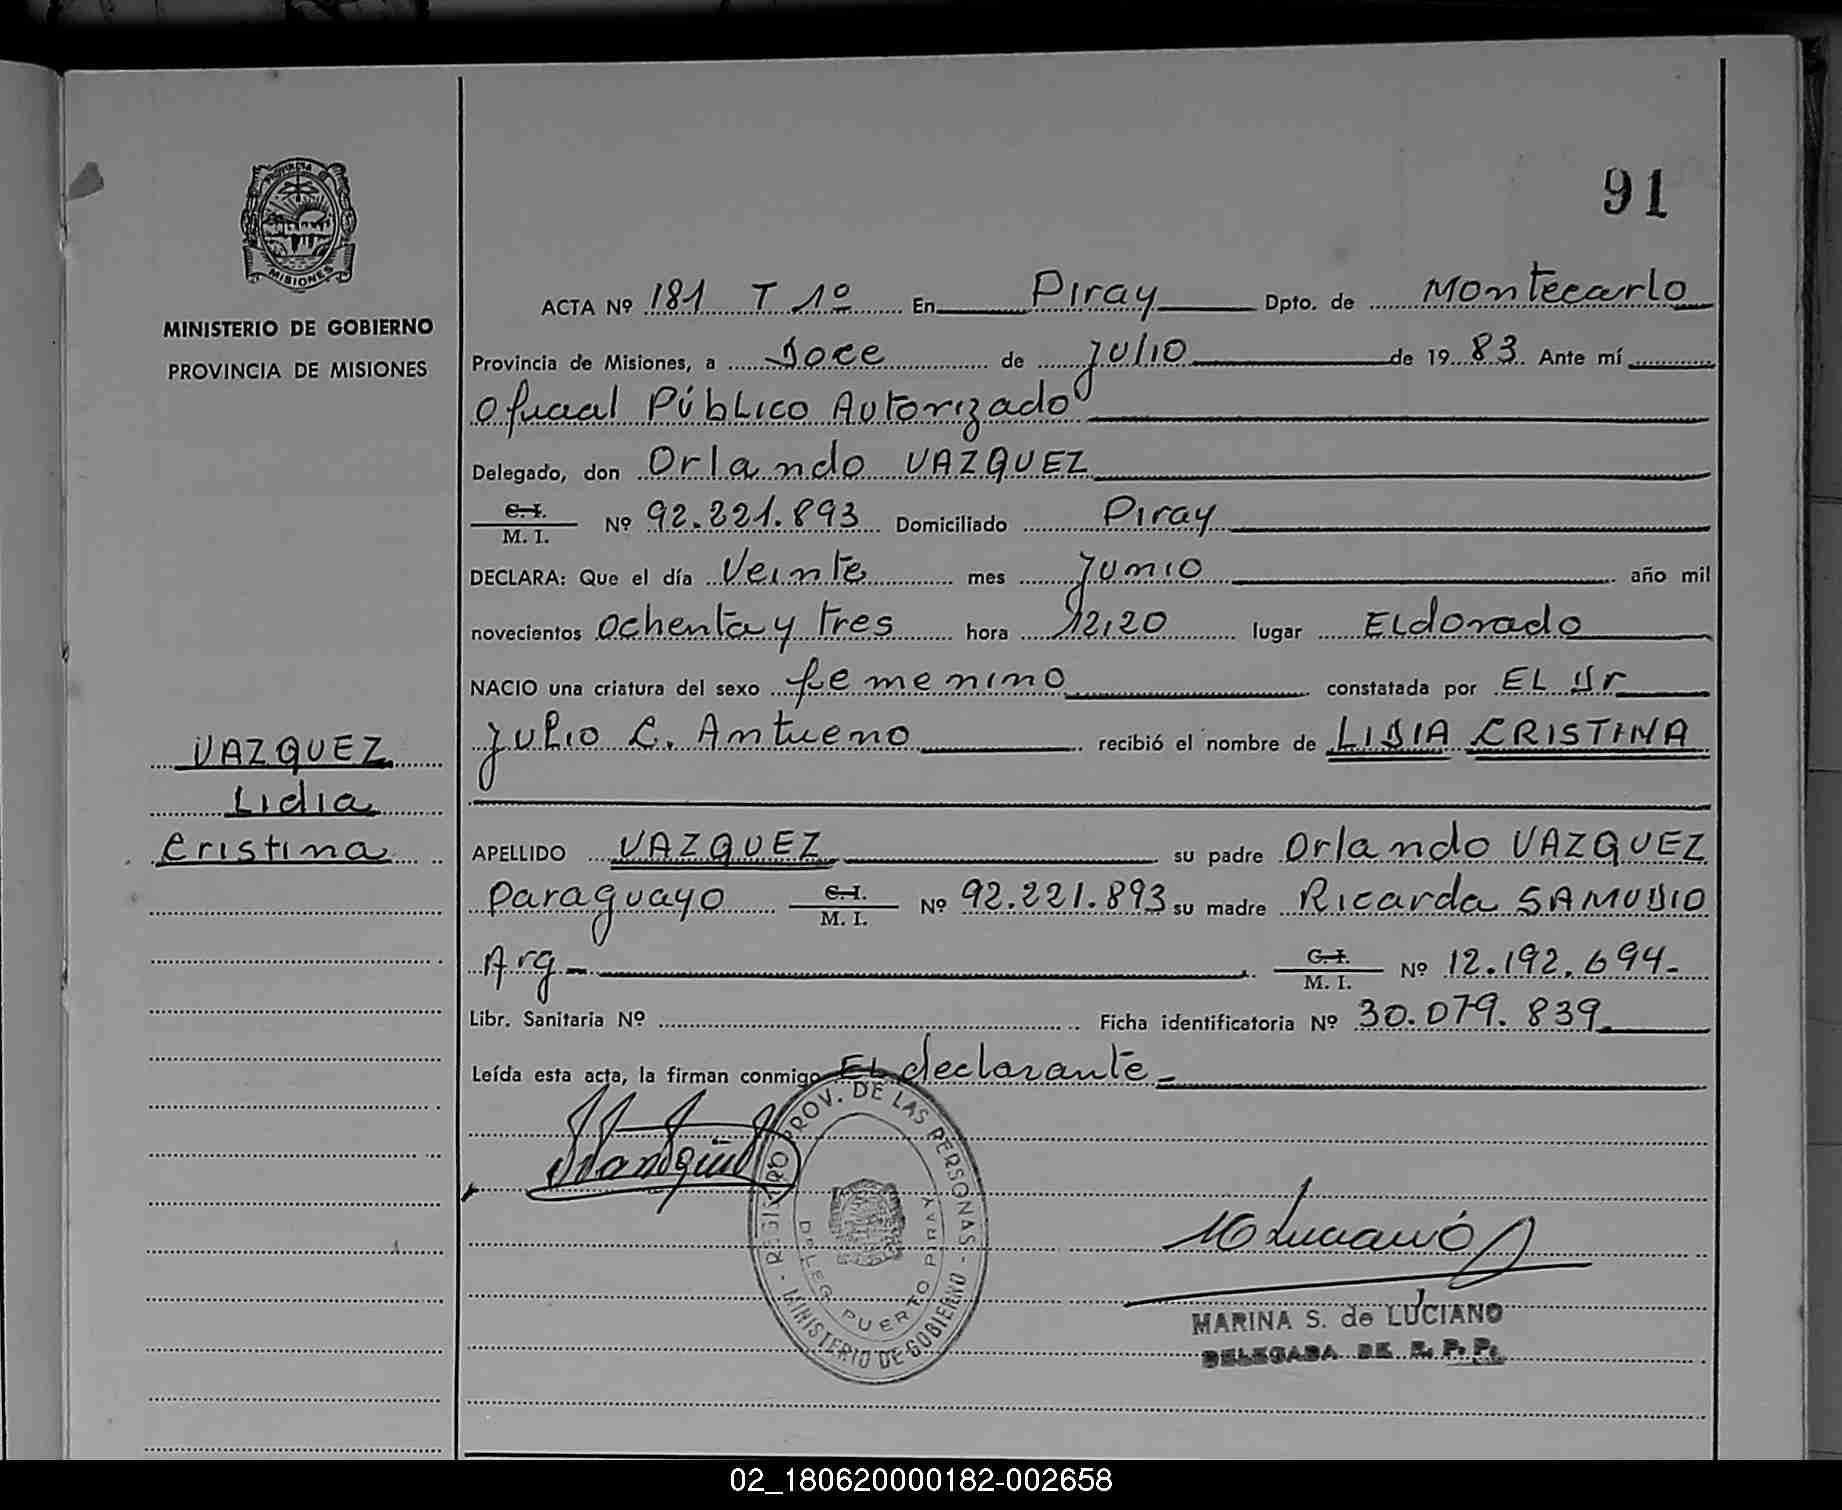 91
PROVINCIA DE
MISIONES
MINISTERIO DE GOBIERNO
PROVINCIA DE MISIONES
ACTA Nº 181 T 1º En Piray Dpto. de Montecarlo
Provincia de Misiones, a Doce de Julio de 1983 Ante mí
Oficial Público Autorizado
Delegado, don Orlando VAZQUEZ
C. I.
M. I. Nº 92.221.893 Domiciliado Piray
DECLARA: Que el día Veinte mes Junio año mil
novecientos Ochenta y tres hora 12,20 lugar ELdorado
NACIO una criatura del sexo femenino constatada por EL Dr
Julio C. Antueno recibió el nombre de LIDIA CRISTINA
VAZQUEZ
Lidia
Cristina
APELLIDO VAZQUEZ su padre Orlando VAZQUEZ
Paraguayo C. I.
M. I. Nº 92.221.893 su madre Ricarda SAMUDIO
Arg - C. I.
M. I. Nº 12.192.694-
Libr. Sanitaria Nº Ficha identificatoria Nº 30.079.839
Leída esta acta, la firman conmigo EL declarante -
REGISTRO PROV. DE LAS PERSONAS - MINISTERIO DE GOBIERNO -
DELEG. PUERTO PIRAY
MARINA S. de LUCIANO
DELEGADA DE R. P. P.
02_180620000182-002658